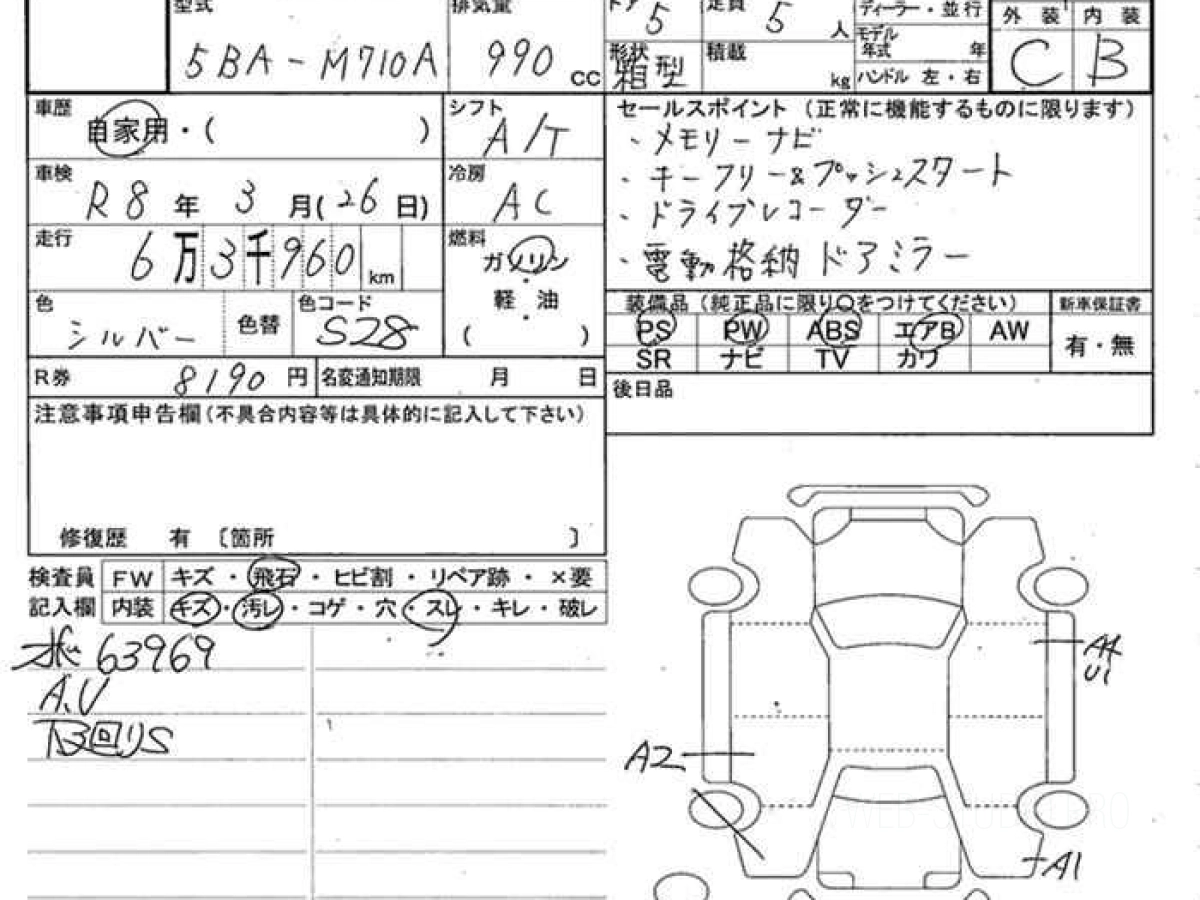 型式 排気量 ドア 5 定員 5 人 ディーラー・並行 外装 内装
5BA-M710A 990 CC モデル年式 年 C B
形状 箱型 積載 kg ハンドル 左・右
車歴 自家用・( ) シフト A/T
セールスポイント (正常に機能するものに限ります)
・メモリーナビ
車検 R8年 3月(26日) 冷房 AC
・キーフリー&プッシュスタート
・ドライブレコーダー
走行 6万3千960 km 燃料 ガソリン
・電動格納ドアミラー
軽・油
( )
色 シルバー 色替 色コード S28
装備品 (純正品に限り○をつけてください) 新車保証書
PS PW ABS エアB AW 有・無
SR ナビ TV カワ
R券 8190 円 名変通知期限 月 日
後日品
注意事項申告欄(不具合内容等は具体的に記入して下さい)
修復歴 有 〔箇所 〕
検査員 FW キズ・飛石・ヒビ割・リペア跡・×要
記入欄 内装 キズ・汚レ・コゲ・穴・スレ・キレ・破レ
63969
A.V
下回りS
A4
U1
A2
A1